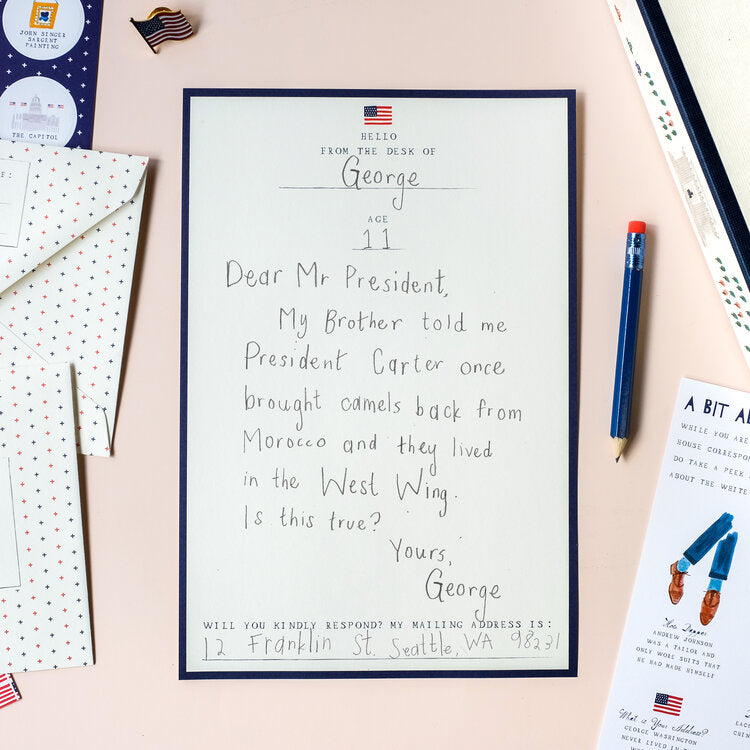 JOHN SINGER
SARGENT
PAINTING
THE CAPITOL
HELLO
FROM THE DESK OF
George
AGE
11
Dear Mr President,
My Brother told me
President Carter once
brought camels back from
Morocco and they lived
in the West Wing.
Is this true?
Yours,
George
WILL YOU KINDLY RESPOND? MY MAILING ADDRESS IS:
12 Franklin St. Seattle, WA 98231
A BIT
WHILE YOU ARE
HOUSE
DO TAKE A PEEK
ABOUT THE WHITE
ANDREW JOHNSON
WAS A TAILOR AND
ONLY WORE SUITS THAT
HE HAD MADE HIMSELF
What is Your Address?
GEORGE WASHINGTON
NEVER LIVED IN